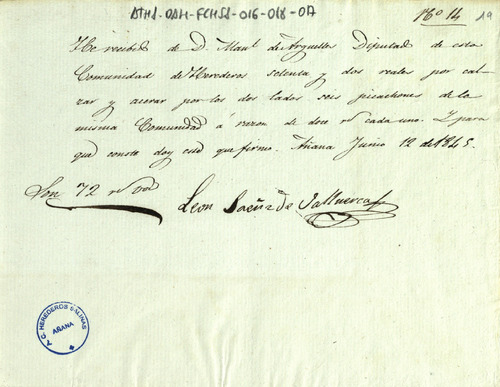 ATHA-DAH-FCHSA-016-018-07
Nº 14
19
He recibido de D. Manl. de Arguelles Diputado de esta
Comunidad de Herederos setenta y dos reales por cal-
zar y acerar por los dos lados seis picachones de la
misma Comunidad á razon de doce rs cada uno. Y para
que conste doy este que firmo. Añana Junio 12 de 1845.
Son 72 rs von
Leon Saenz de
T. G. HEREDEROS SALINAS
AÑANA